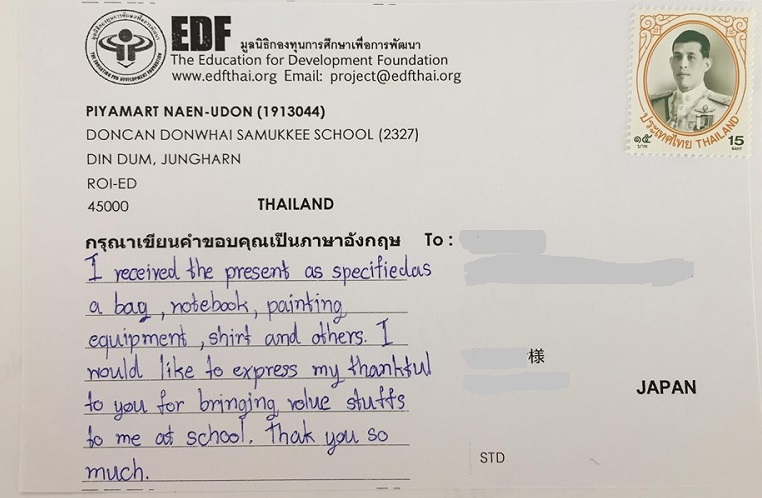 EDF มูลนิธิกองทุนการศึกษาเพื่อการพัฒนา
The Education for Development Foundation
www.edfthai.org Email: project@edfthai.org
PIYAMART NAEN-UDON (1913044)
DONCAN DONWHAI SAMUKKEE SCHOOL (2327)
DIN DUM, JUNGHARN
ROI-ED
45000 THAILAND
กรุณาเขียนคำขอบคุณเป็นภาษาอังกฤษ To :
I received the present as specifiedas
a bag, notebook, painting
equipment, shirt and others. I
would like to express my thankful
to you for bringing value stuffs
to me at school. Thak you so
much.
様
JAPAN
STD
ประเทศไทย THAILAND
๑๕ 15
บาท BAHT